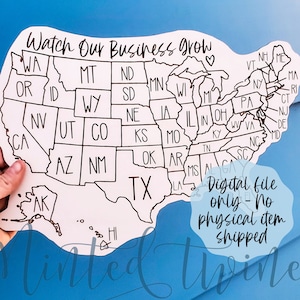 Watch Our Business Grow
WA
MT
ND
OR
ID
SD
MN
WI
MI
VT
NH
ME
WY
NE
IA
NY
MA
NV
UT
CO
KS
MO
IL
IN
OH
PA
CA
AZ
NM
OK
AR
KY
VA
TX
LA
MS
AL
AK
HI
Digital file
only - No
physical item
shipped
Minted twine